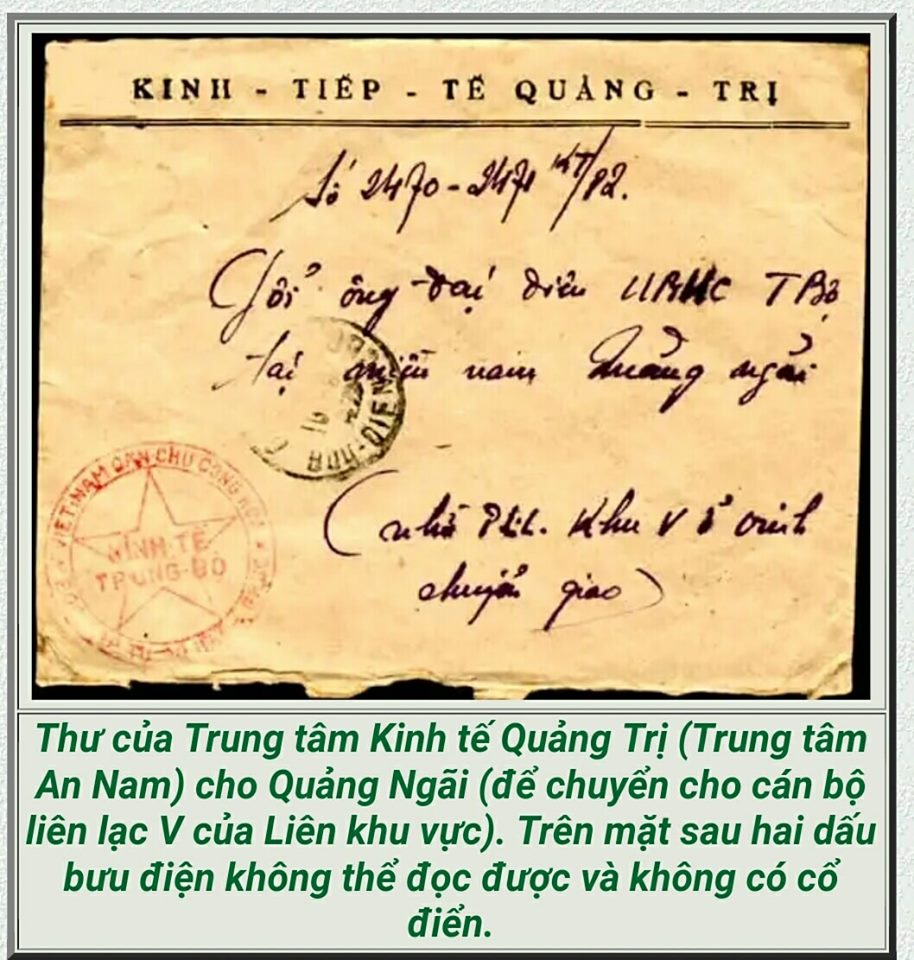 KINH - TIẾP - TẾ QUẢNG - TRỊ
Số 2470-2471 KT/P2.
Gởi ông đại diên UBHC TBộ
tại miền nam Quảng ngãi
BUU-DIEN
VIET-NAM DAN CHU CONG HOA
KINH TẾ
TRUNG-BỘ
Khu V ở
chuyển giao)
Thư của Trung tâm Kinh tế Quảng Trị (Trung tâm
An Nam) cho Quảng Ngãi (để chuyển cho cán bộ
liên lạc V của Liên khu vực). Trên mặt sau hai dấu
bưu điện không thể đọc được và không có cổ
điển.